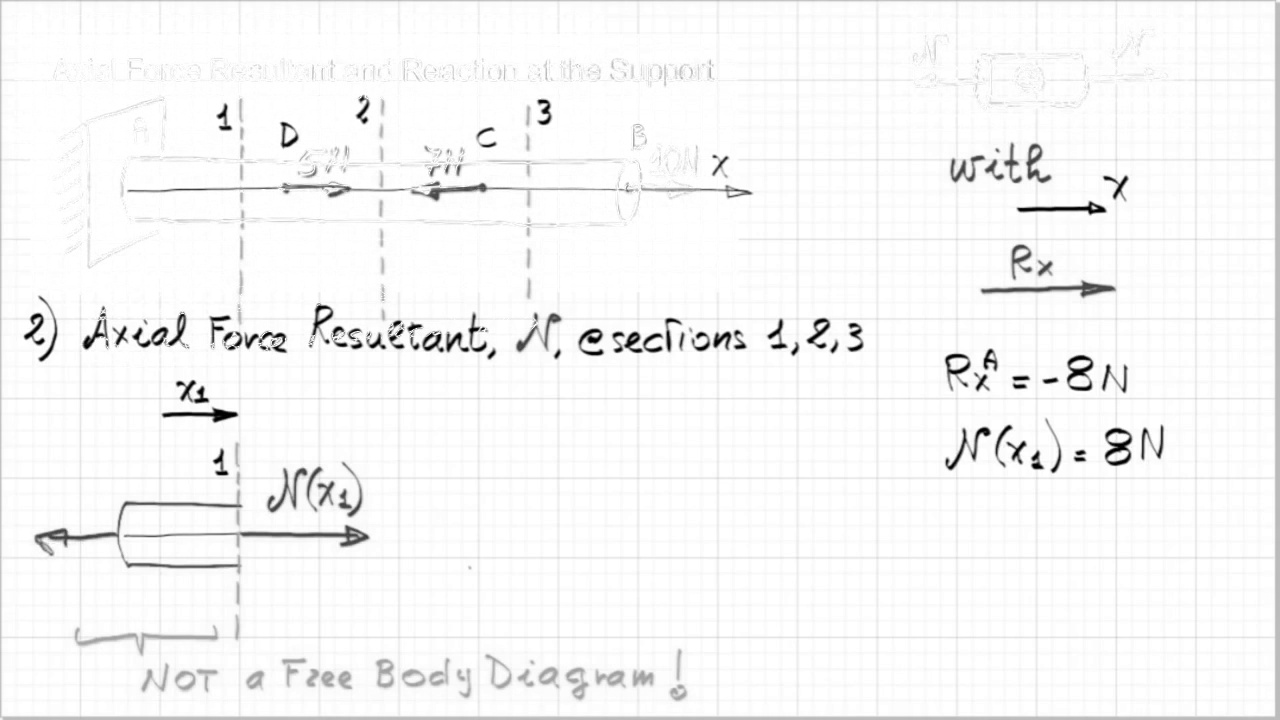 Axial Force Resultant and Reaction at the Support
N N
1 2 3
A D C B
5N 7N 10N x
with
x
Rx
2) Axial Force Resultant, N, @sections 1, 2, 3
RxA = -8N
x1
N(x1) = 8N
1
N(x1)
NOT a Free Body Diagram!